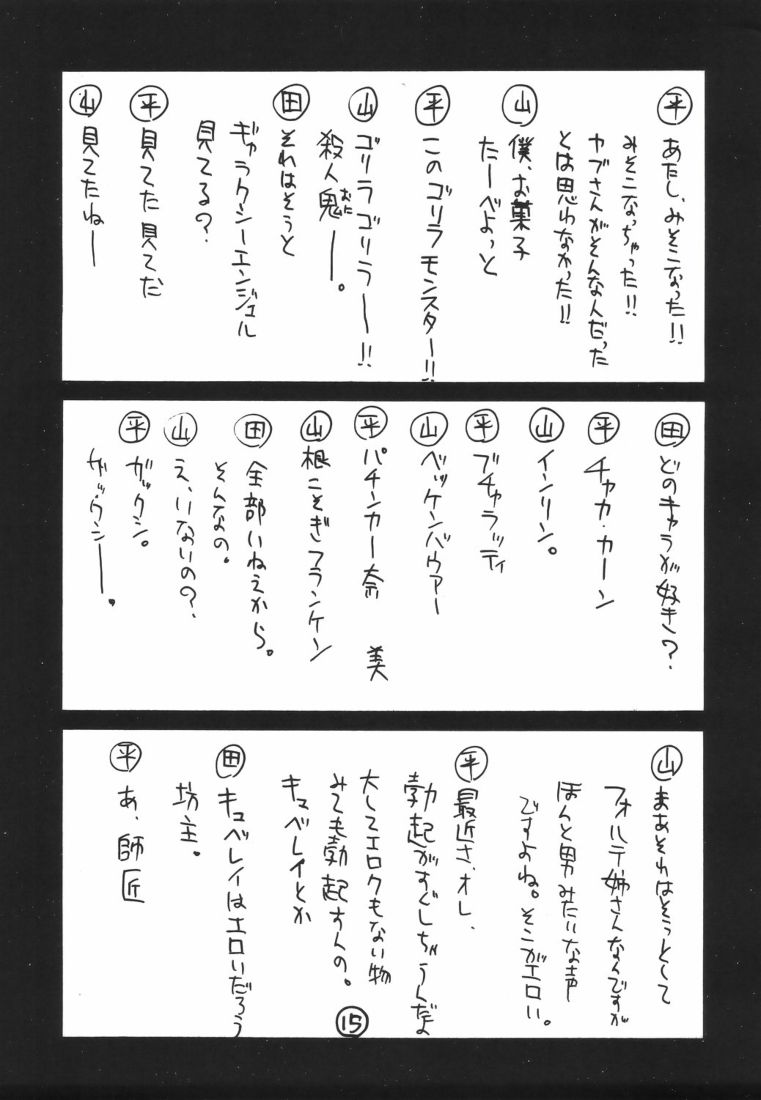 平 あたし、みそこなった!!
みそこなっちゃった!!
ヤブさんがそんな人だった
とは思わなかった!!
山 僕、お菓子
たーべよっと
平 このゴリラモンスター!!
山 ゴリラゴリラー!!
殺人鬼ー。
おに
田 それはそうと
ギャラクシーエンジェル
見てる?
平 見てた見てた
山 見てたねー
田 どのキャラが好き?
平 チャカ・カーン
山 インリン。
平 ブチャラッティ
山 ベッケンバウアー
平 パチンカー奈美
山 根こそぎフランケン
田 全部いねえから。
そんなの。
山 え、いないの?
平 ガックシ。
ガックシー。
山 まあそれはそうとして
フォルテ姉さんなんですが
ほんと男みたいな声
ですよね。そこがエロい。
平 最近さ、オレ、
勃起がすぐしちゃうんだよ
大してエロくもない物
みても勃起すんの。
キュベレイとか
田 キュベレイはエロいだろう
坊主。
平 あ、師匠
15